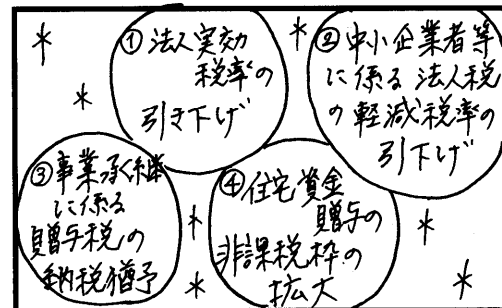 ①法人実効
税率の
引き下げ
②中小企業者等
に係る法人税
の軽減税率の
引下げ
③事業承継
に係る
贈与税の
納税猶予
④住宅資金
贈与の
非課税枠の
拡大